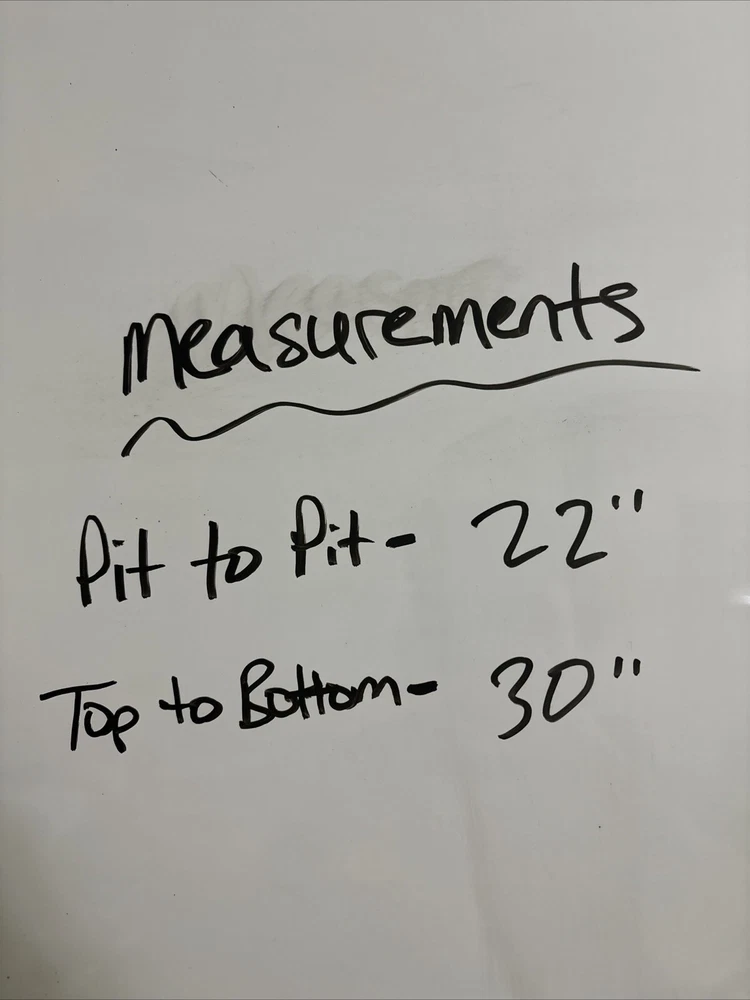 measurements
Pit to Pit - 22"
Top to Bottom - 30"